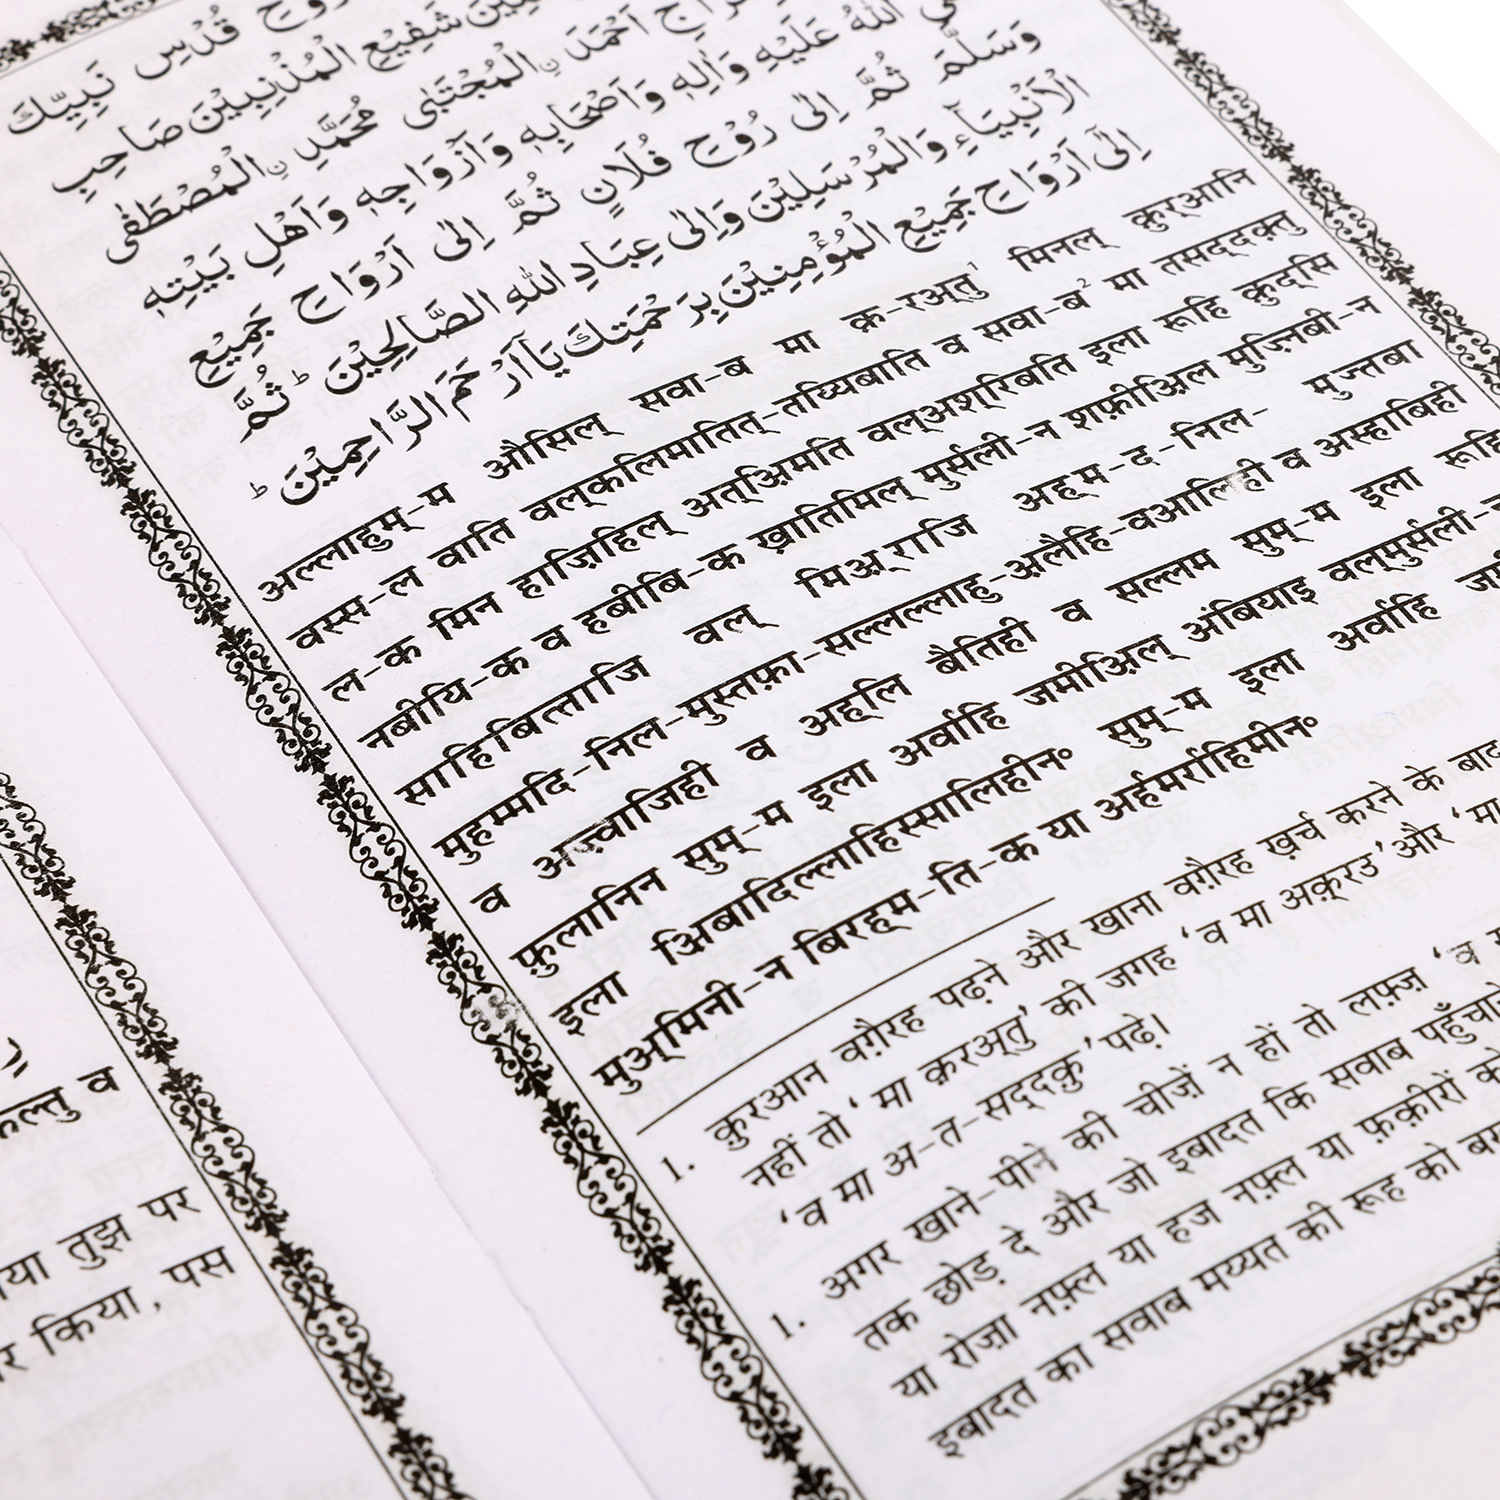 رُوْحِ قُدْسِ نَبِيِّكَ
شَفِيْعِ الْمُذْنِبِيْنَ صَاحِبِ
اَحْمَدَ نِ الْمُجْتَبٰى مُحَمَّدِ نِ الْمُصْطَفٰى
اللهُ عَلَيْهِ وَاٰلِهٖ وَاَصْحَابِهٖ وَاَزْوَاجِهٖ وَاَهْلِ بَيْتِهٖ
وَسَلَّمَ ثُمَّ اِلٰى رُوْحِ فُلَانٍ ثُمَّ اِلٰى اَرْوَاحِ جَمِيْعِ
الْاَنْبِيَآءِ وَالْمُرْسَلِيْنَ وَاِلٰى عِبَادِ اللهِ الصَّالِحِيْنَ ط ثُمَّ
اِلٰى اَرْوَاحِ جَمِيْعِ الْمُؤْمِنِيْنَ بِرَحْمَتِكَ يَآ اَرْحَمَ الرَّاحِمِيْنَ ط
अल्लाहुम्-म औसिल् सवा-ब मा क़-रअ्तु¹ मिनल् क़ुर्आनि
वस्स-ल वाति वल्कलिमातित्-तय्यिबाति व सवा-ब² मा तसद्दक़्तु
ल-क मिन हाज़िहिल् अत्अ़िमति वल्अश्रिबति इला रूहि क़ुद्सि
नबीयि-क व हबीबि-क ख़ातिमिल् मुर्सली-न शफ़ीअ़िल मुज़्निबी-न
साहिबित्ताजि वल् मिअ़्राजि अह्म-द-निल- मुज्तबा
मुहम्मदि-निल-मुस्तफ़ा-सल्लल्लाहु-अ़लैहि-वआलिही व अस्हाबिही
व अज़्वाजिही व अह्लि बैतिही व सल्लम सुम्-म इला रूहि
फ़ुलानिन सुम्-म इला अर्वाहि जमीअ़िल् अंबियाइ वल्मुर्सली-न
इला अ़िबादिल्लाहिस्सालिहीन॰ सुम्-म इला अर्वाहि
मुअ्मिनी-न बिरह्म-ति-क या अर्हमर्राहिमीन॰
1. क़ुरआन वग़ैरह पढ़ने और खाना वग़ैरह ख़र्च करने के बाद
नहीं तो ‘मा क़रअ्तु’ की जगह ‘व मा अक़्रउ’ और ‘मा
‘व मा अ-त-सद्दक़ु’ पढ़े।
1. अगर खाने-पीने की चीज़ें न हों तो लफ़्ज़ ‘व
तक छोड़ दे और जो इबादत कि सवाब पहुँचाने
या रोज़ा नफ़्ल या हज नफ़्ल या फ़क़ीरों को
इबादत का सवाब मय्यत की रूह को
कल्तु व
तुझ पर
किया, पस